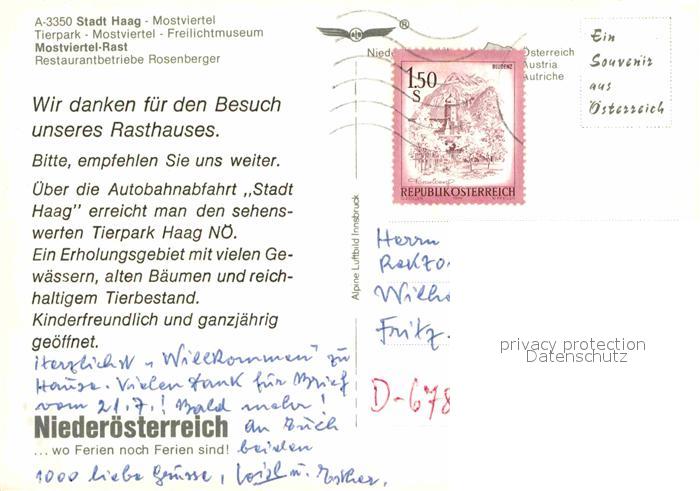 A-3350 Stadt Haag - Mostviertel
Tierpark - Mostviertel - Freilichtmuseum
Mostviertel-Rast
Restaurantbetriebe Rosenberger
Wir danken für den Besuch
unseres Rasthauses.
Bitte, empfehlen Sie uns weiter.
Über die Autobahnabfahrt „Stadt
Haag" erreicht man den sehens-
werten Tierpark Haag NÖ.
Ein Erholungsgebiet mit vielen Ge-
wässern, alten Bäumen und reich-
haltigem Tierbestand.
Kinderfreundlich und ganzjährig
geöffnet.
Herzlichst „Willkommen" zu
Hause. Vielen Dank für Brief
vom 21.7.! Bald mehr!
Niederösterreich an Euch
... wo Ferien noch Ferien sind! beiden
1000 liebe Grüsse, u. Esther.
Alpine Luftbild Innsbruck
®
Niede Österreich
Austria
Autriche
BLUDENZ
1.50
S
REPUBLIK ÖSTERREICH
Ein
Souvenir
aus
Österreich
Herrn
Rektor
Wilh
Fritz.
D-678
privacy protection
Datenschutz